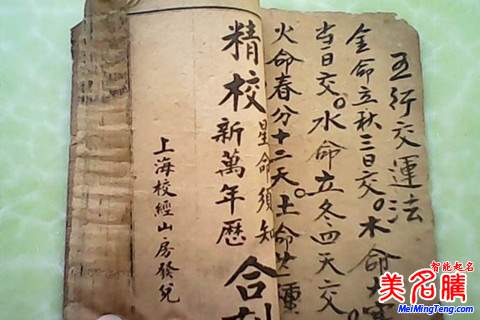 五行交運法
金命立秋三日交。木命大
当日交。水命立冬四天交
火命春分十二天。土命
精校
星命須知
新萬年歷
合
上海校經山房發兌
智能起名
美名腾
MeiMingTeng.com